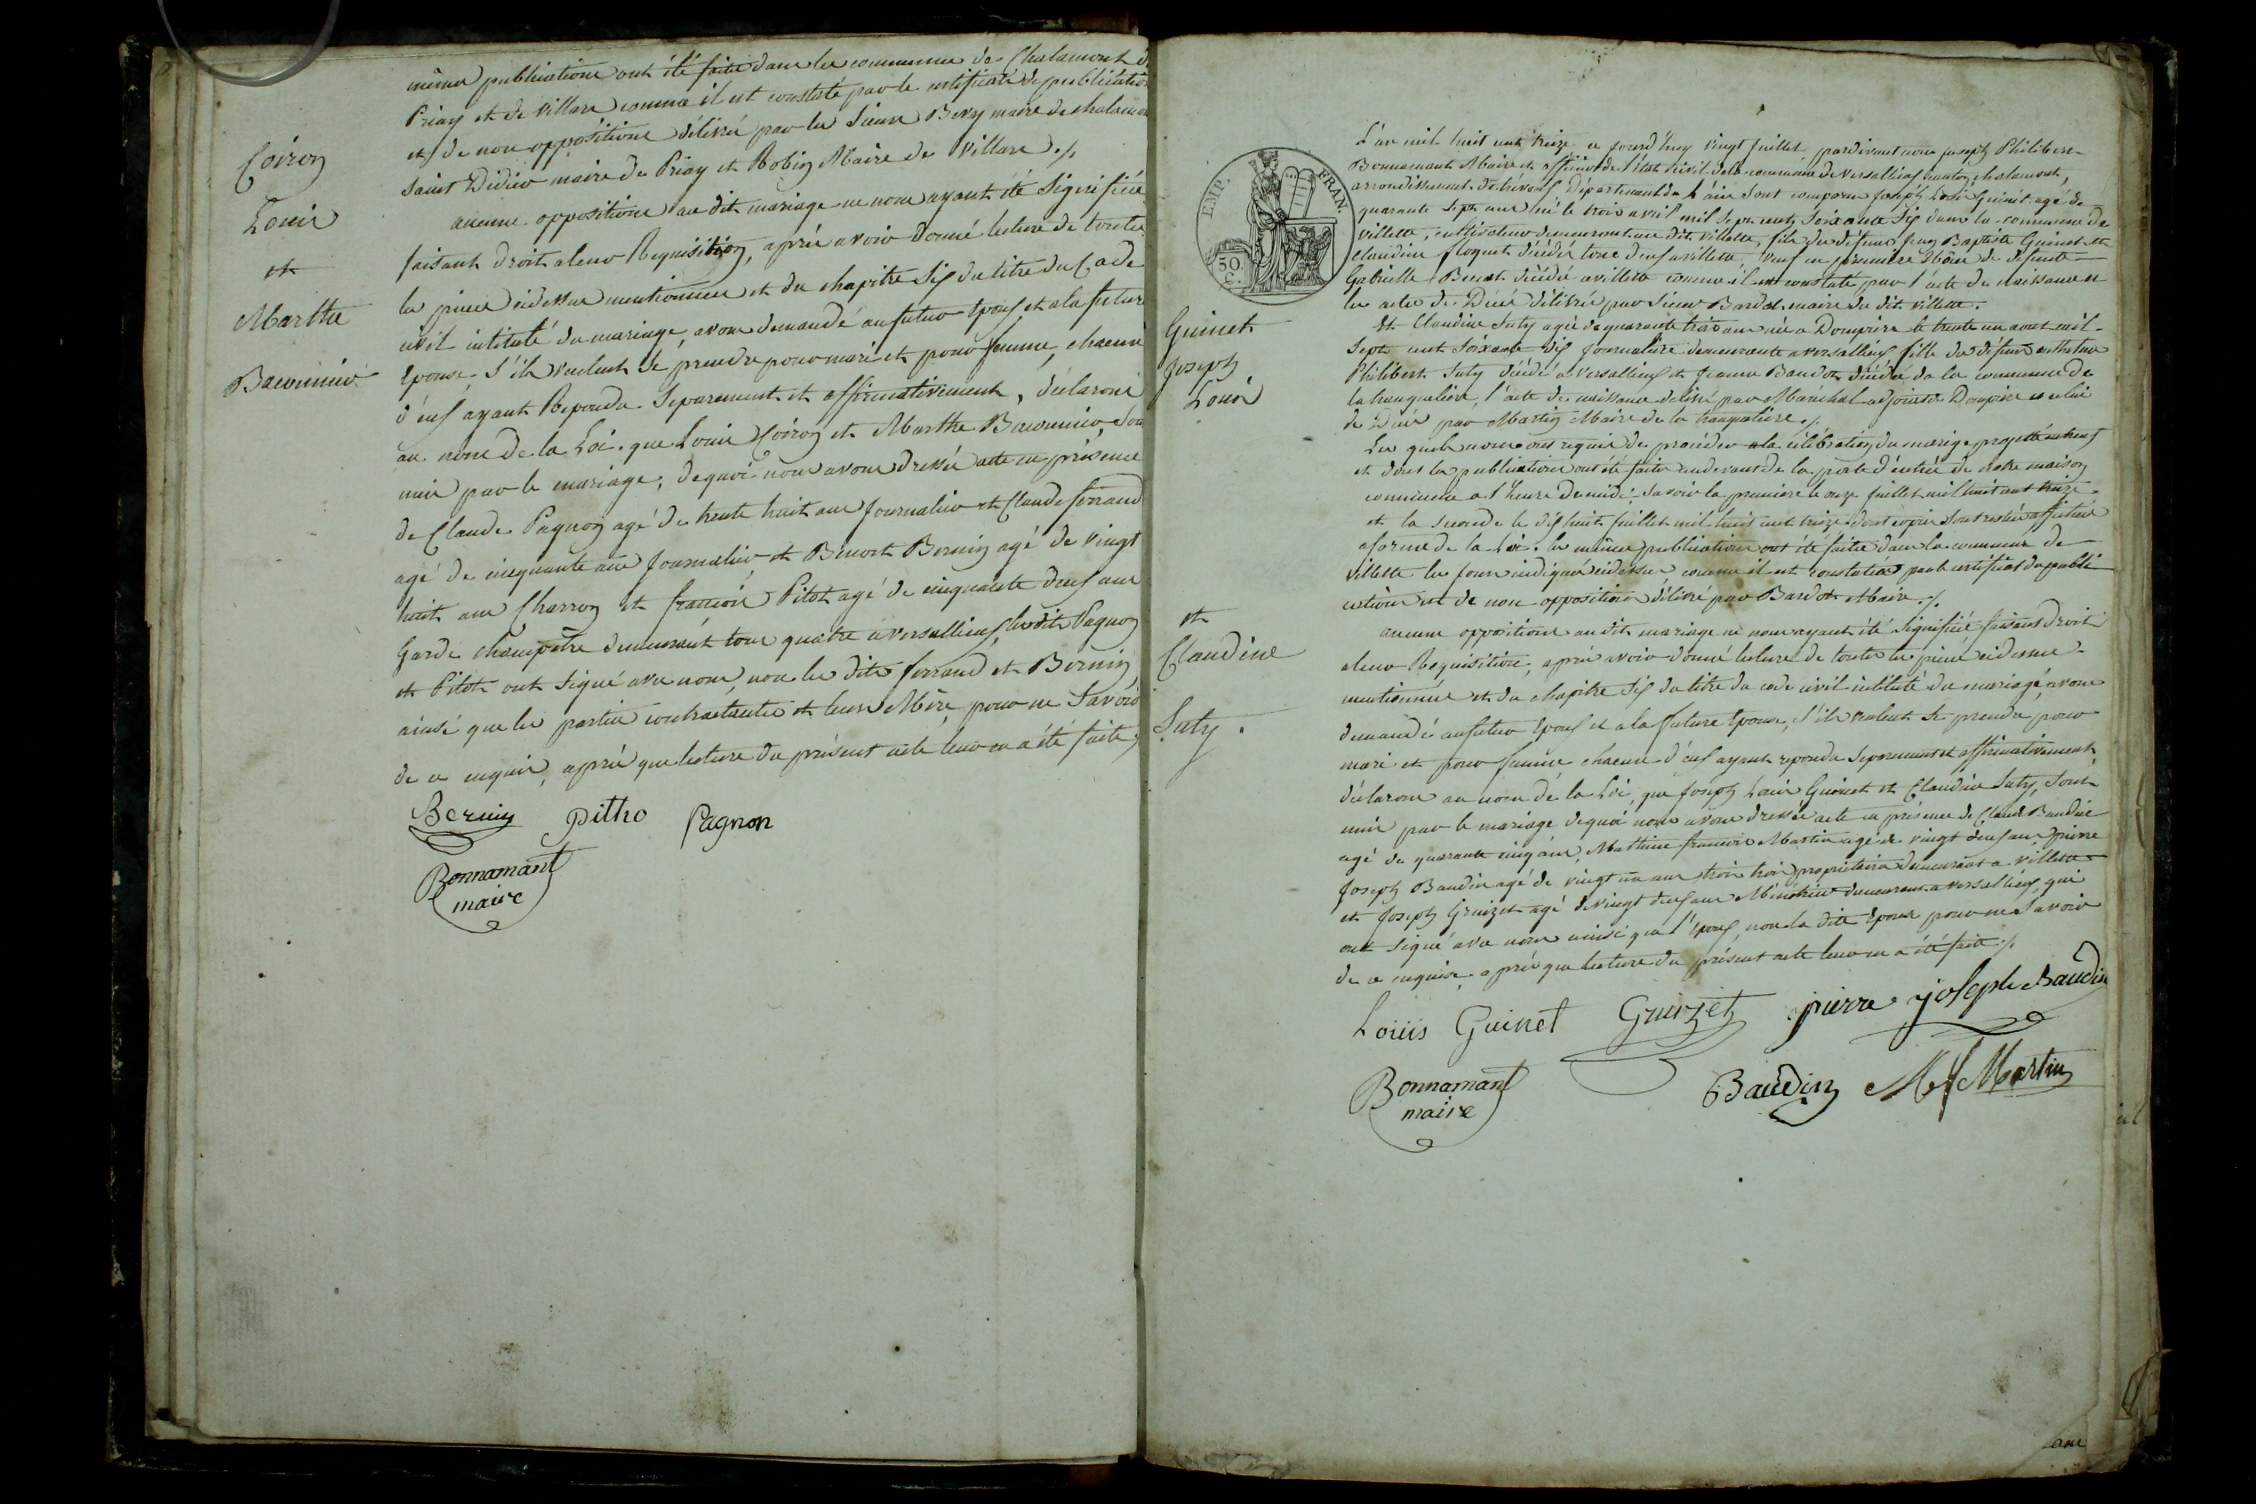 même publications ont été faite dans les communes de Chalamont de
Priay et de Villars comme il est constaté par le certificate de publication
et de non opposition délivré par les Sieurs Bevy maire de chalamont
Saint Didier maire de Priay et Robin Maire de Villars ./.
aucune oppositions au dit mariage ne nous ayant été Signifiée
faisant droit aleur Requisition, après avoir donné lecture de toutes
les pieces cidessus mentionnées et du chapitre Six du titre du Code
civil intitulé du mariage, avons demandé au futur Epoux et ala future
Epouse S'ils veulent Se prendre pour mari et pour femme, chacun
d'eux ayant Repondu Separement et affirmativement, déclarons
au nom de la Loi que Louis Coiron et Marthe Bavounier, sont
unis par le mariage, dequoi nous avons dressé acte en présence
de Claude Pagnon agé de trente huit ans Journalier et Claude ferrand
agé de cinquante ans Journalier et Benoit Bernin agé de vingt
huit ans Charron et françois Pitot agé de cinquante deux ans
Garde champêtre demeurant tous quatre a versallieux, les dits Pagnon
et Pitot ont Signé avec nous, non les dits ferrand et Bernin
ainsi que les parties contractantes et leurs Mère pour ne Savoir
de ce enquis, après que lecture du présent acte leur en a été faite,
Coiron
Louis
et
Marthe
Bavounier
Bernin Pitho Pagnon
Bonnamant
maire
EMP. FRAN.
50 C.
L'an mil huit cent treize ce jourd'huy vingt Juillet pardevant nous Joseph Philibert
Bonnamant Maire et officier de l'état Civil de la commune de Versallieux canton chalamont,
arrondissement de trévoux Département de L'ain Sont comparu Joseph Louis Guinet agé de
quarante Sept ans né le trois avril mil Sept cent Soixante Six dans la commune de
villette, cultivateur demeurant au dit villette, fils de défunt Jean Baptiste Guinet et
claudine floquet décédés tous deux a villette, veuf en premiere Nôce de défunte
Gabrielle Benoit décédée a villette comme il est constaté par l'acte de Naissance et
les actes de Décé délivrés par Sieur Bardot maire du dit villette.
Et Claudine Suty agée de quarante trois ans née a Dompière le trente un aout mil
Sept cent Soixante dix Journalière demeurante a versallieux fille de défunt
Philibert Suty décédé a versallieux et Jeanne Baudot décédée da la commune de
la tranqualière, l'acte de naissance délivré par Marechal adjoint Dompière et celui
de Décé par Martin Maire de la tranqualière ./.
Les quels nous ont requis de procéder ala célébration du mariage projetté entreux
et dont les publications ont été faites audevant de la porte d'entrée de notre maison
commune a l'heure de midi, Savoir la premiere le onze Juillet mil huit cent treize
et la Seconde le dix huit Juillet mil huit cent treize dont copies Sont restées affichées
aforme de la Loi. les mêmes publications ont été faites dans la commune de
Villette les Jours indiqués cidessus comme il est constaté par le certificat de publi
cations et de non opposition délivré par Bardot Maire ./.
aucune opposition au dit mariage ne nous ayant été Signifiée faisant droit
aleur Requisition, après avoir donné lecture de toutes les pieces cidessus
mentionnées et du chapitre Six du titre du code civil intitulé du mariage, avons
demandé au futur Epoux et a la future Epouse, S'ils veulent Se prendre pour
mari et pour femme chacun d'eux ayant repondu Separement et affirmativement,
déclarons au nom de la Loi, que Joseph Louis Guinet et Claudine Suty, Sont
unis par le mariage dequoi nous avons dressé acte en présence de Claude Baudin
agé de quarante cinq ans, Mathieu francois Martin agé de vingt deux ans, Pierre
Joseph Baudin agé de vingt un ans tous trois propriétaires demeurant a villette
et Joseph Gruizet agé de vingt deux ans Ménétrier demeurant a versallieux, qui
ont Signé avec nous ainsi que l'époux, non la dite Epouse pour ne Savoir
de ce enquise, après que lecture du présent acte leur en a été faite ./.
Guinet
Joseph
Louis
et
Claudine
Suty.
Louis Guinet Gruizet pierre joseph Baudin
Bonnamant
maire
Baudin M f Martin